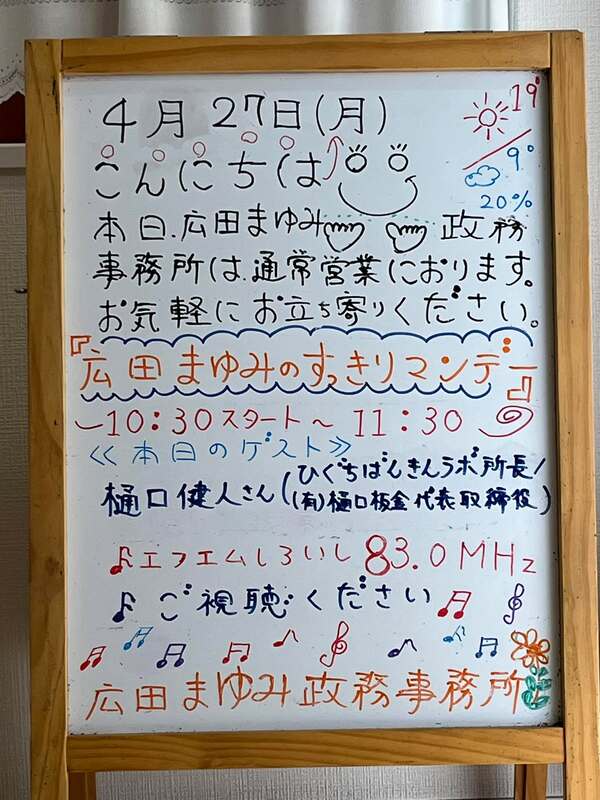 4月27日(月)
19°
9°
20%
こんにちは
本日、広田まゆみ 政務
事務所は、通常営業におります。
お気軽にお立ち寄りください。
『広田まゆみのすっきりマンデー』
10:30スタート〜11:30
≪本日のゲスト≫
樋口健人さん(ひぐちばんきんラボ所長/
(有)樋口板金代表取締役)
♪エフエムしろいし83.0MHz
♪ご視聴ください♬
広田まゆみ政務事務所